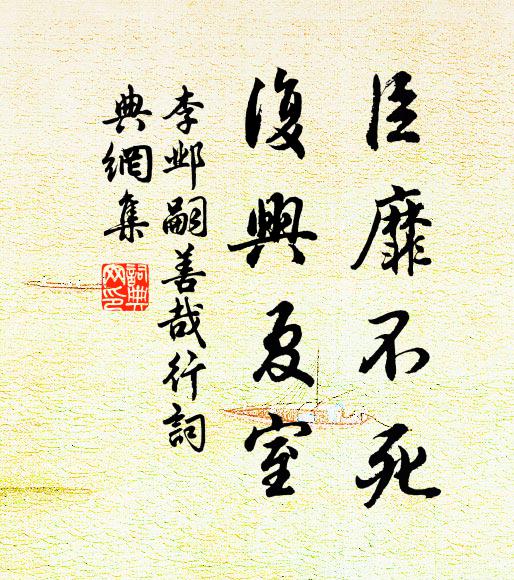 臣靡不死
復興夏室
李邺嗣善哉行詞
典網集
詞典網印